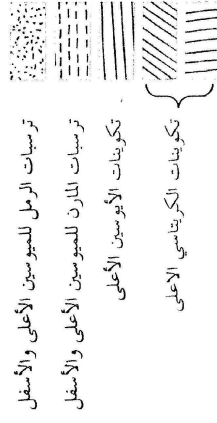 ترسبات الرمل للميوسين الأعلى والأسفل
ترسبات المارن للميوسين الأعلى والأسفل
تكوينات الأيوسين الأعلى
تكوينات الكريتاسي الاعلى